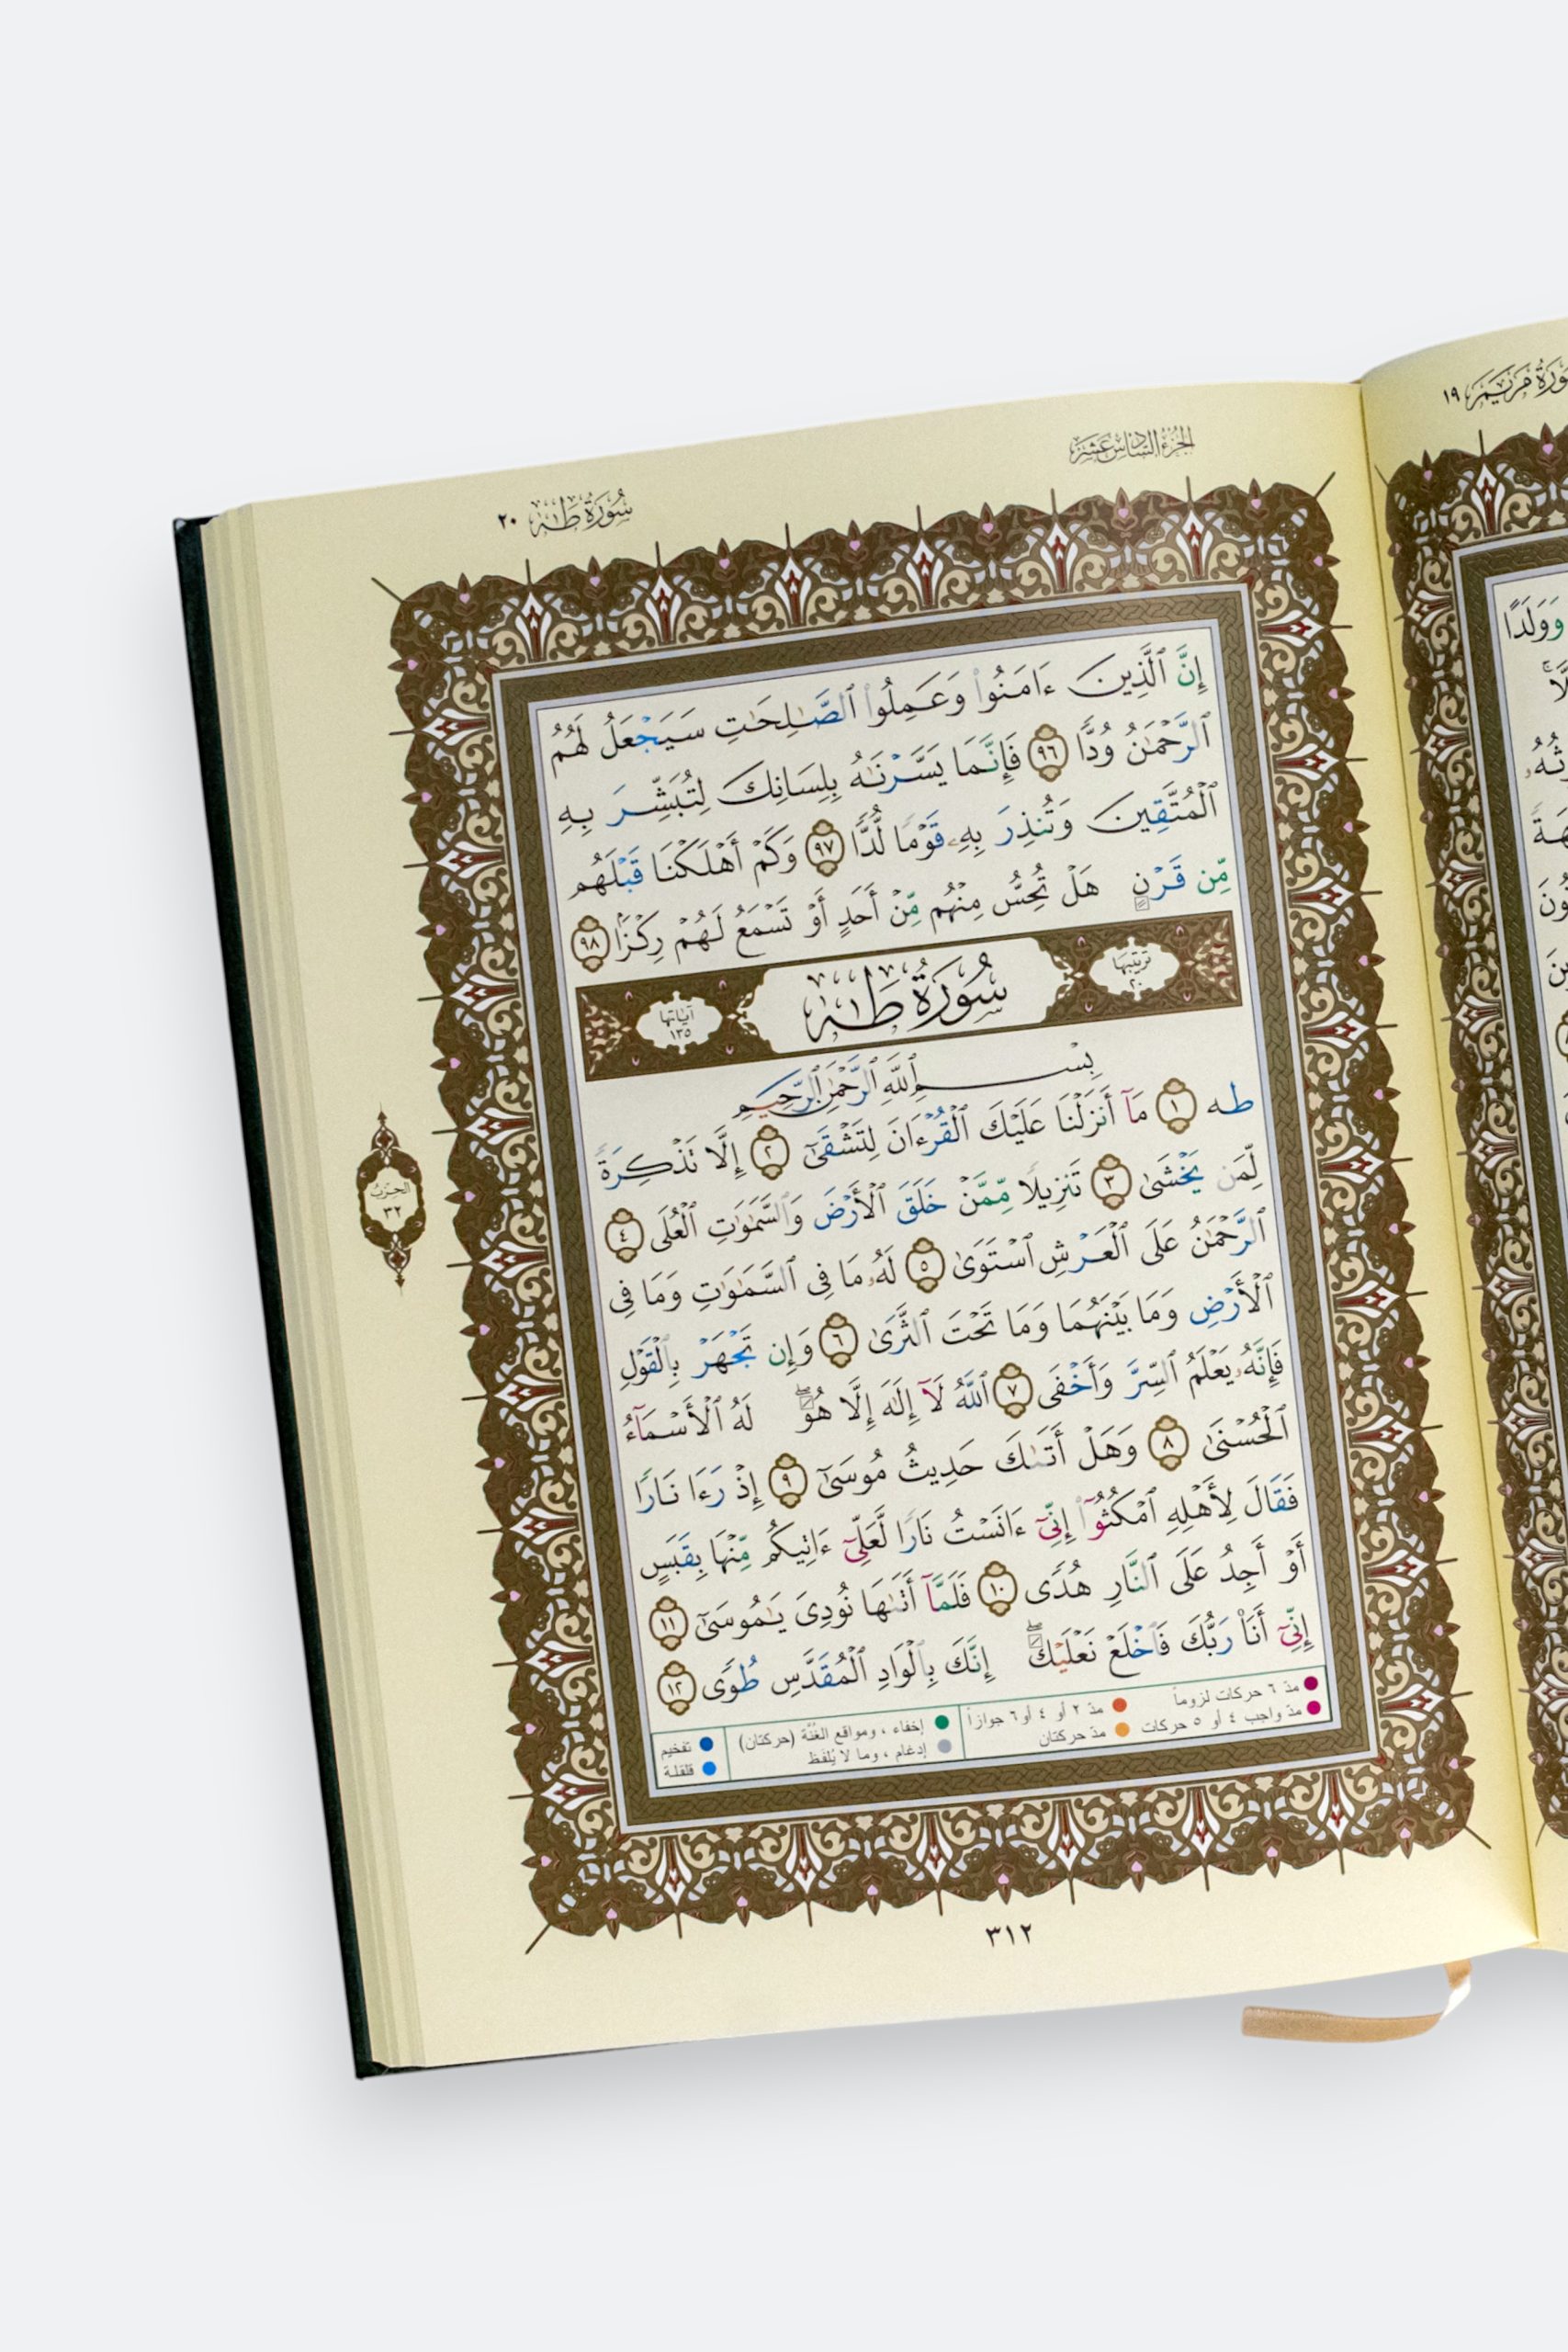 سُورَةُ طٰهٰ ٢٠
الجُزْءُ السَّادِسَ عَشَرَ
إِنَّ ٱلَّذِينَ ءَامَنُوا۟ وَعَمِلُوا۟ ٱلصَّـٰلِحَـٰتِ سَيَجْعَلُ لَهُمُ
ٱلرَّحْمَـٰنُ وُدًّا ٩٦ فَإِنَّمَا يَسَّرْنَـٰهُ بِلِسَانِكَ لِتُبَشِّرَ بِهِ
ٱلْمُتَّقِينَ وَتُنذِرَ بِهِۦ قَوْمًا لُّدًّا ٩٧ وَكَمْ أَهْلَكْنَا قَبْلَهُم
مِّن قَرْنٍ هَلْ تُحِسُّ مِنْهُم مِّنْ أَحَدٍ أَوْ تَسْمَعُ لَهُمْ رِكْزًۢا ٩٨
تَرتيبُهَا ٢٠
سُورَةُ طٰهٰ
آياتها ١٣٥
بِسْمِ ٱللَّهِ ٱلرَّحْمَـٰنِ ٱلرَّحِيمِ
طه ١ مَآ أَنزَلْنَا عَلَيْكَ ٱلْقُرْءَانَ لِتَشْقَىٰٓ ٢ إِلَّا تَذْكِرَةً
لِّمَن يَخْشَىٰ ٣ تَنزِيلًا مِّمَّنْ خَلَقَ ٱلْأَرْضَ وَٱلسَّمَـٰوَٰتِ ٱلْعُلَى ٤
ٱلرَّحْمَـٰنُ عَلَى ٱلْعَرْشِ ٱسْتَوَىٰ ٥ لَهُۥ مَا فِى ٱلسَّمَـٰوَٰتِ وَمَا فِى
ٱلْأَرْضِ وَمَا بَيْنَهُمَا وَمَا تَحْتَ ٱلثَّرَىٰ ٦ وَإِن تَجْهَرْ بِٱلْقَوْلِ
فَإِنَّهُۥ يَعْلَمُ ٱلسِّرَّ وَأَخْفَى ٧ ٱللَّهُ لَآ إِلَـٰهَ إِلَّا هُوَۖ لَهُ ٱلْأَسْمَآءُ
ٱلْحُسْنَىٰ ٨ وَهَلْ أَتَىٰكَ حَدِيثُ مُوسَىٰٓ ٩ إِذْ رَءَا نَارًا
فَقَالَ لِأَهْلِهِ ٱمْكُثُوٓا۟ إِنِّىٓ ءَانَسْتُ نَارًا لَّعَلِّىٓ ءَاتِيكُم مِّنْهَا بِقَبَسٍ
أَوْ أَجِدُ عَلَى ٱلنَّارِ هُدًى ١٠ فَلَمَّآ أَتَىٰهَا نُودِىَ يَـٰمُوسَىٰٓ ١١
إِنِّىٓ أَنَا۠ رَبُّكَ فَٱخْلَعْ نَعْلَيْكَۖ إِنَّكَ بِٱلْوَادِ ٱلْمُقَدَّسِ طُوًى ١٢
مدّ ٦ حركات لزوماً
مدّ واجب ٤ أو ٥ حركات
مدّ ٢ أو ٤ أو ٦ جوازاً
مدّ حركتان
إخفاء ، ومواقع الغُنَّة (حركتان)
إدغام ، وما لا يُلفَظ
تفخيم
قلقلة
الحِزْبُ
٣٢
٣١٢
سُورَةُ مَرْيَمَ ١٩
وَوَلَدًا